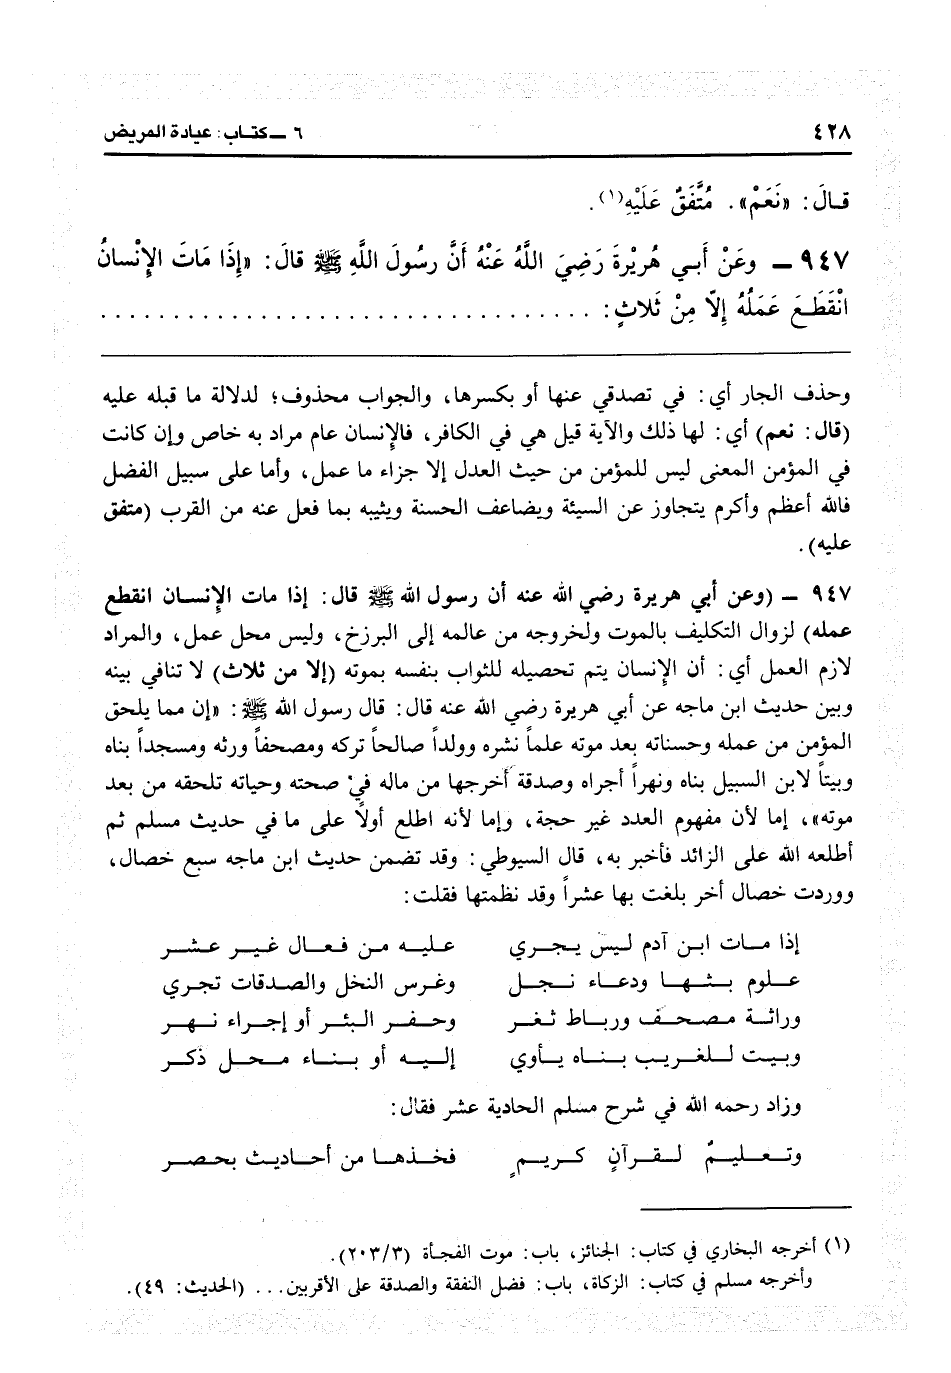 ٤٢٨
٦ ـ كتاب: عيادة المريض
قَالَ: «نَعَمْ». مُتَّفَقٌ عَلَيْهِ(١).
٩٤٧ ـ وعَنْ أَبي هُرَيْرةَ رَضِيَ اللَّهُ عَنْهُ أَنَّ رسُولَ اللَّهِ ﷺ قالَ: «إِذَا مَاتَ الإِنْسانُ
انْقَطَعَ عَمَلُهُ إلّا مِنْ ثَلاثٍ: . . . . . . . . . . . . . . . . . . . . . . . . . . . . . . . . . . .
وحذف الجار أي: في تصدقي عنها أو بكسرها، والجواب محذوف؛ لدلالة ما قبله عليه
(قال: نعم) أي: لها ذلك والآية قيل هي في الكافر، فالإنسان عام مراد به خاص وإن كانت
في المؤمن المعنى ليس للمؤمن من حيث العدل إلا جزاء ما عمل، وأما على سبيل الفضل
فالله أعظم وأكرم يتجاوز عن السيئة ويضاعف الحسنة ويثيبه بما فعل عنه من القرب (متفق
عليه).
٩٤٧ ـ (وعن أبي هريرة رضي الله عنه أن رسول الله ﷺ قال: إذا مات الإنسان انقطع
عمله) لزوال التكليف بالموت ولخروجه من عالمه إلى البرزخ، وليس محل عمل، والمراد
لازم العمل أي: أن الإنسان يتم تحصيله للثواب بنفسه بموته (إلا من ثلاث) لا تنافي بينه
وبين حديث ابن ماجه عن أبي هريرة رضي الله عنه قال: قال رسول الله ﷺ: «إن مما يلحق
المؤمن من عمله وحسناته بعد موته علماً نشره وولداً صالحاً تركه ومصحفاً ورثه ومسجداً بناه
وبيتاً لابن السبيل بناه ونهراً أجراه وصدقة أخرجها من ماله في صحته وحياته تلحقه من بعد
موته»، إما لأن مفهوم العدد غير حجة، وإما لأنه اطلع أولاً على ما في حديث مسلم ثم
أطلعه الله على الزائد فأخبر به، قال السيوطي: وقد تضمن حديث ابن ماجه سبع خصال،
ووردت خصال أخر بلغت بها عشراً وقد نظمتها فقلت:
إذا مات ابن آدم ليس يجري عليه من فعال غير عشر
علوم بثها ودعاء نجل وغرس النخل والصدقات تجري
وراثة مصحف ورباط ثغر وحفر البئر أو إجراء نهر
وبيت للغريب بناه يأوي إليه أو بناء محل ذكر
وزاد رحمه الله في شرح مسلم الحادية عشر فقال:
وتعليمٌ لقرآنٍ كريمٍ فخذها من أحاديث بحصر
(١) أخرجه البخاري في كتاب: الجنائز، باب: موت الفجأة (٢٠٣/٣).
وأخرجه مسلم في كتاب: الزكاة، باب: فضل النفقة والصدقة على الأقربين... (الحديث: ٤٩).